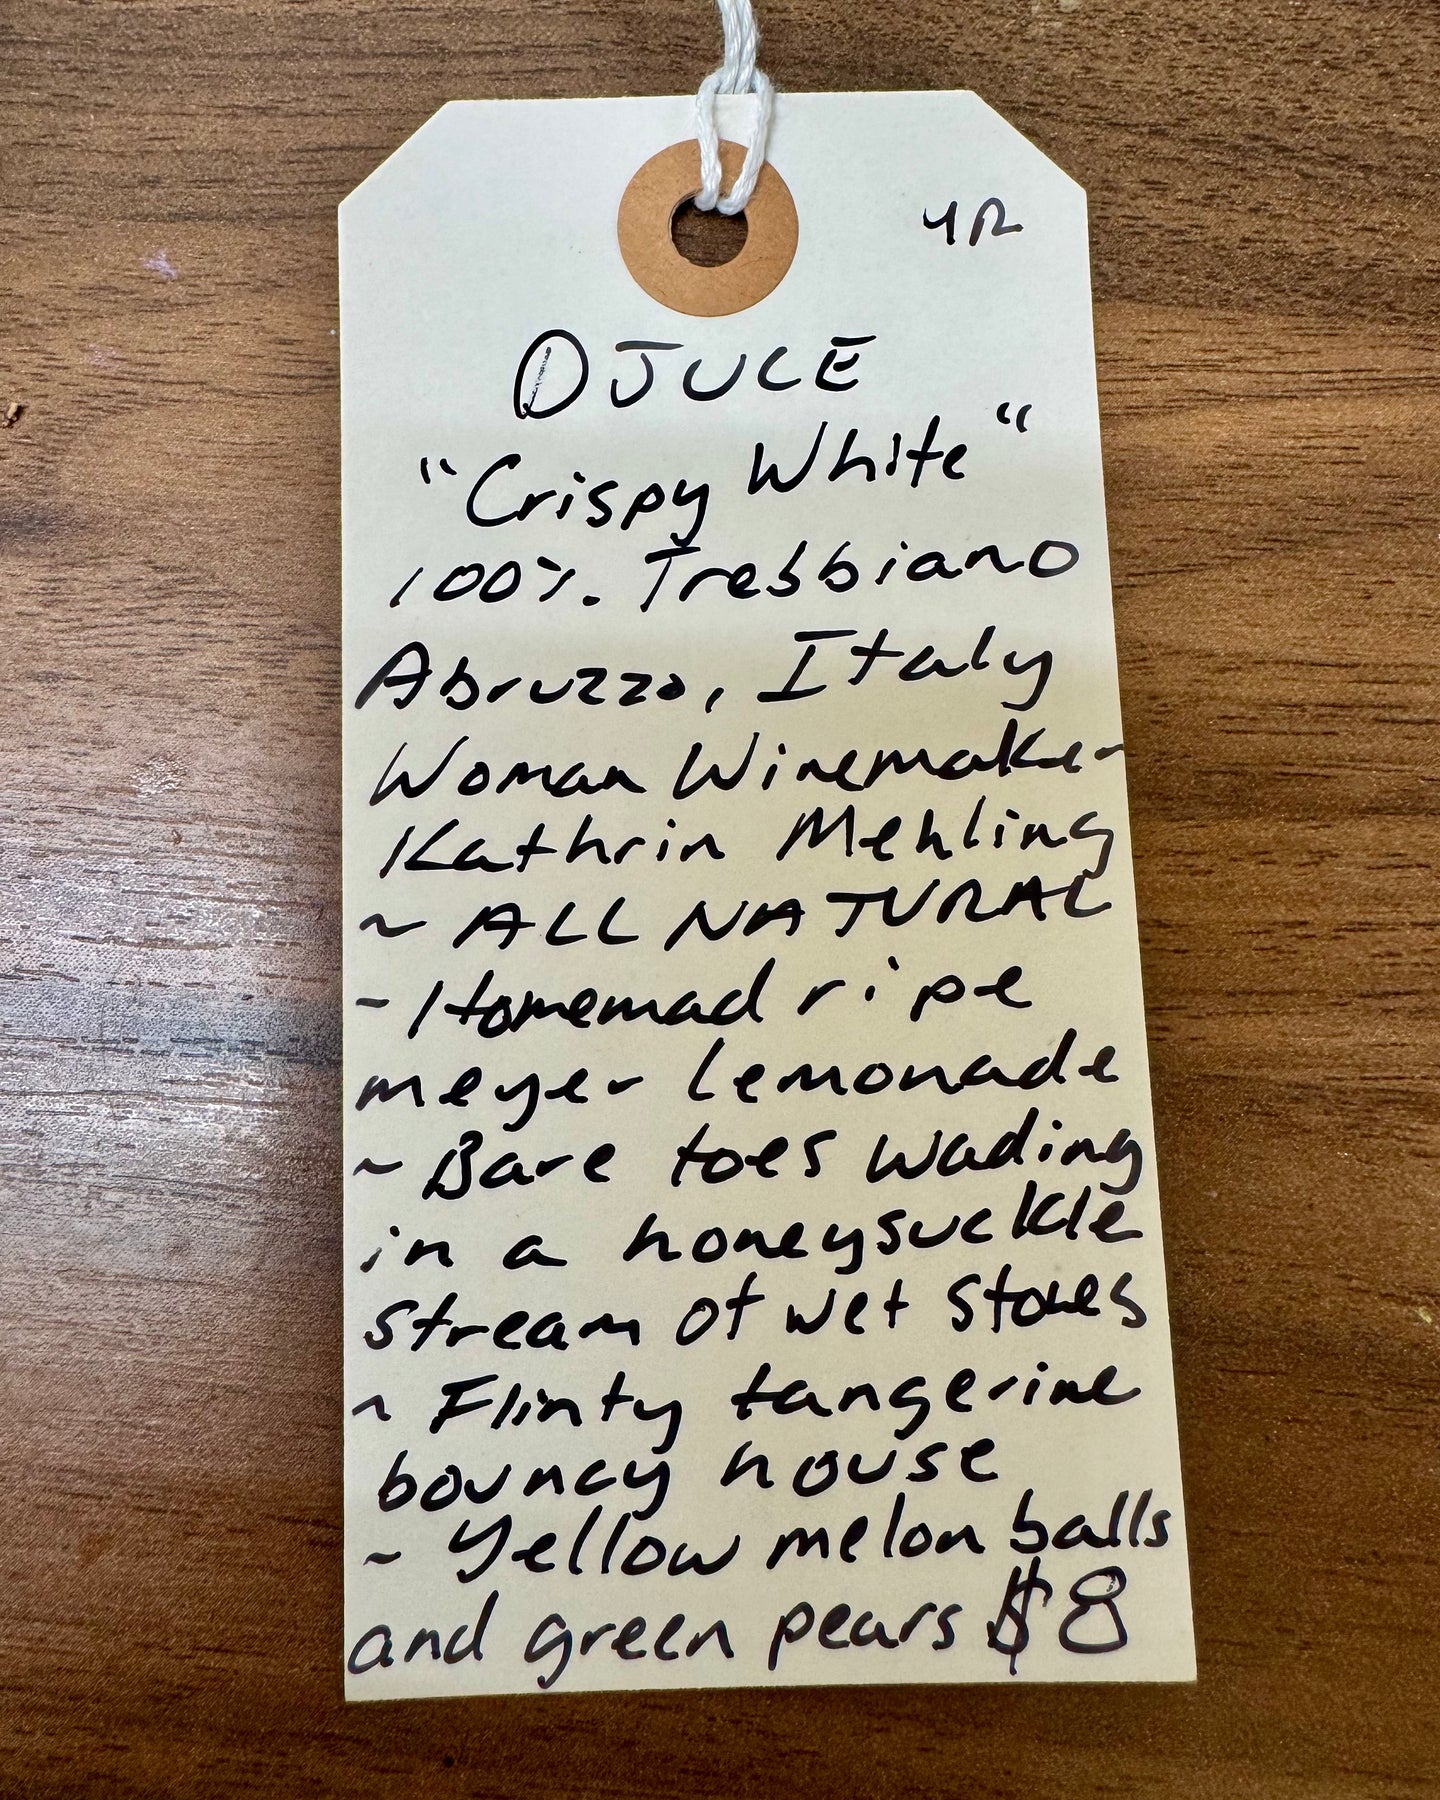 4R
DJUCE
"Crispy White"
100%. Trebbiano
Abruzzo, Italy
Woman Winemaker
Kathrin Mehling
~ ALL NATURAL
~ Homemad ripe
meyer lemonade
~ Bare toes wading
in a honeysuckle
stream of wet stones
~ Flinty tangerine
bouncy house
~ Yellow melon balls
and green pears $8